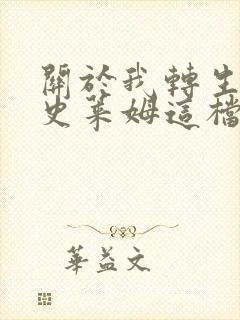 關於我轉生
史萊姆這檔
華益文